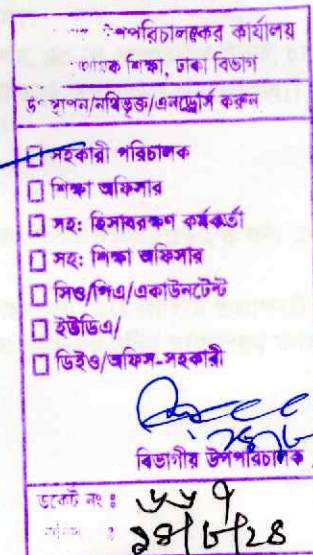 উপপরিচালকের কার্যালয়
শিক্ষা, ঢাকা বিভাগ
উপস্থাপন/নথিভুক্ত/এনড্রোর্স করুন
☐ সহকারী পরিচালক
☐ শিক্ষা অফিসার
☐ সহ: হিসাবরক্ষণ কর্মকর্তা
☐ সহ: শিক্ষা অফিসার
☐ সিও/পিএ/একাউনটেন্ট
☐ ইউডিএ/
☐ ডিইও/অফিস-সহকারী
বিভাগীয় উপপরিচালক
ডকেট নং :